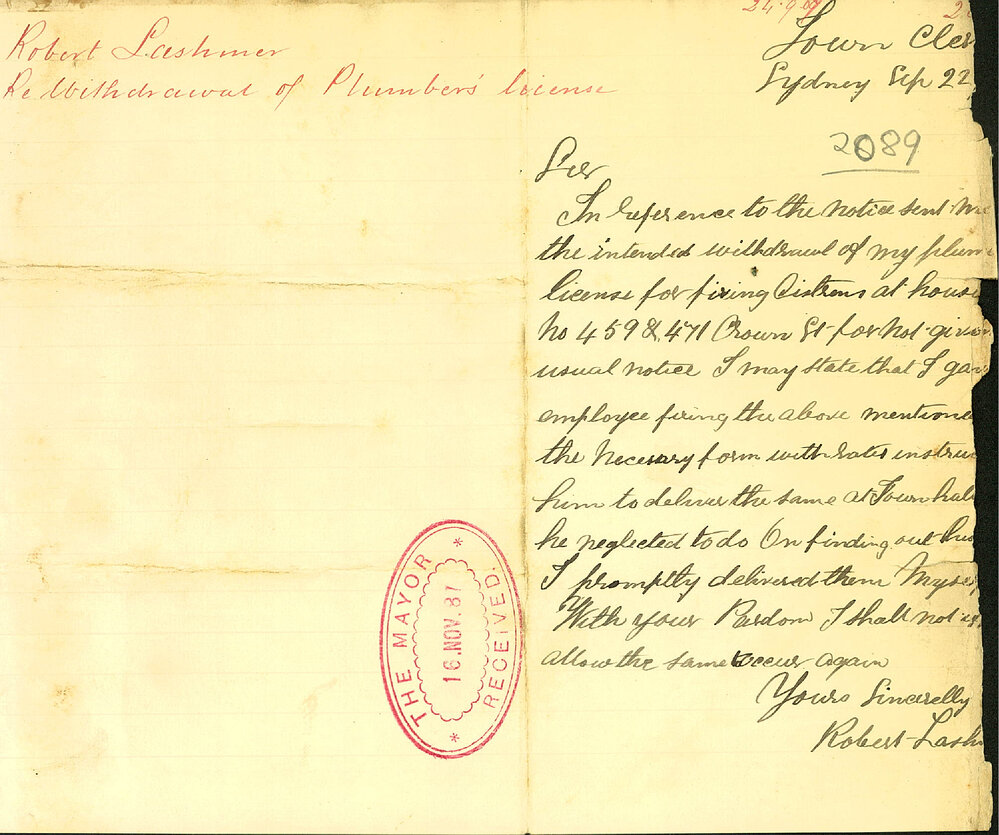 Robert Lashmer
Re Withdrawal of Plumber's license
24.9.
Town Cler
Sydney Sep 22
2089
Sir
In reference to the notice sent
the intended withdrawal of my plum
license for fixing Cistrens at house
No 459 & 471 Crown St for not givin
usual notice I may state that I gav
employee fixing the above mentione
the Necessary form with rates instruc
him to deliver the same at Town hall
he neglected to do On finding out
I promptly delivered them Myself
With your Pardon I shall not
allow the same occur again
Yours Sincerelly
Robert Lash
THE MAYOR
16.NOV.87
RECEIVED.